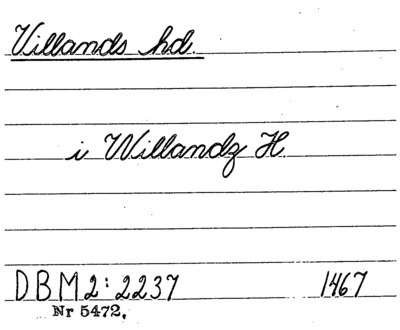 Villands hd.
i Willandz H
DBM 2:2237 1467
Nr 5472.